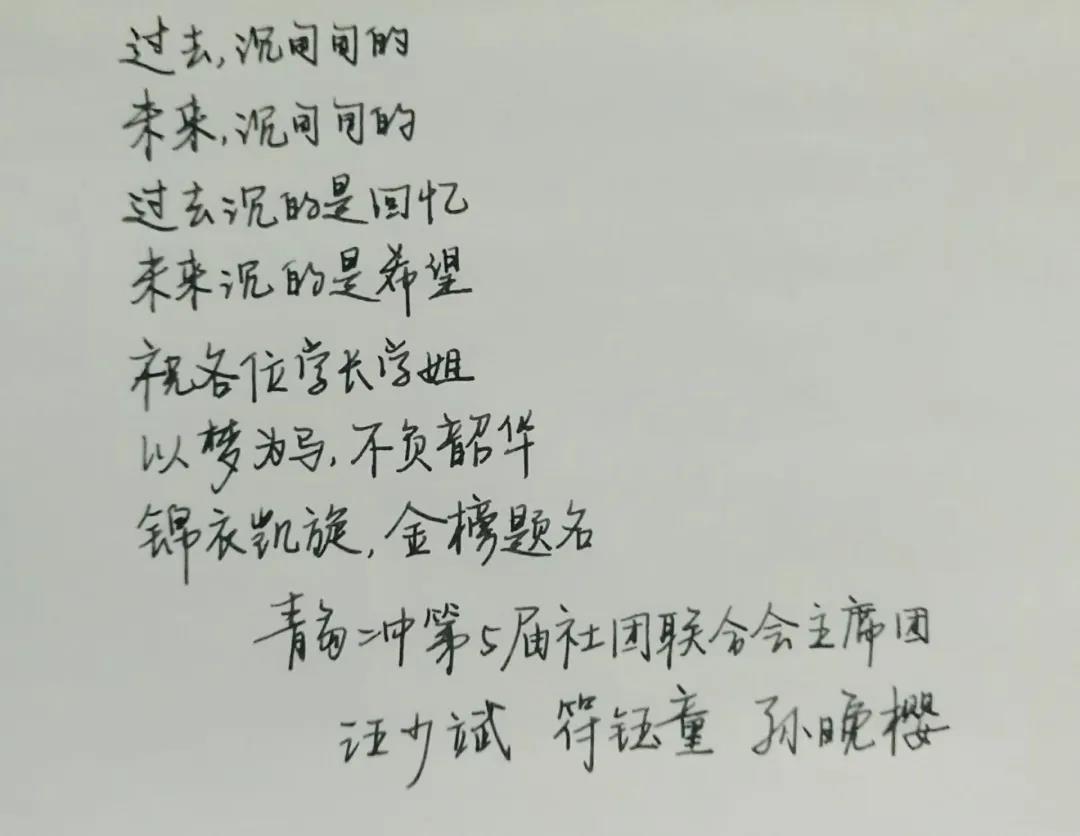 过去,沉甸甸的
未来,沉甸甸的
过去沉的是回忆
未来沉的是希望
祝各位学长学姐
以梦为马,不负韶华
锦衣凯旋,金榜题名
青岛二中第5届社团联合会主席团
汪少斌 符钰童 孙晚樱